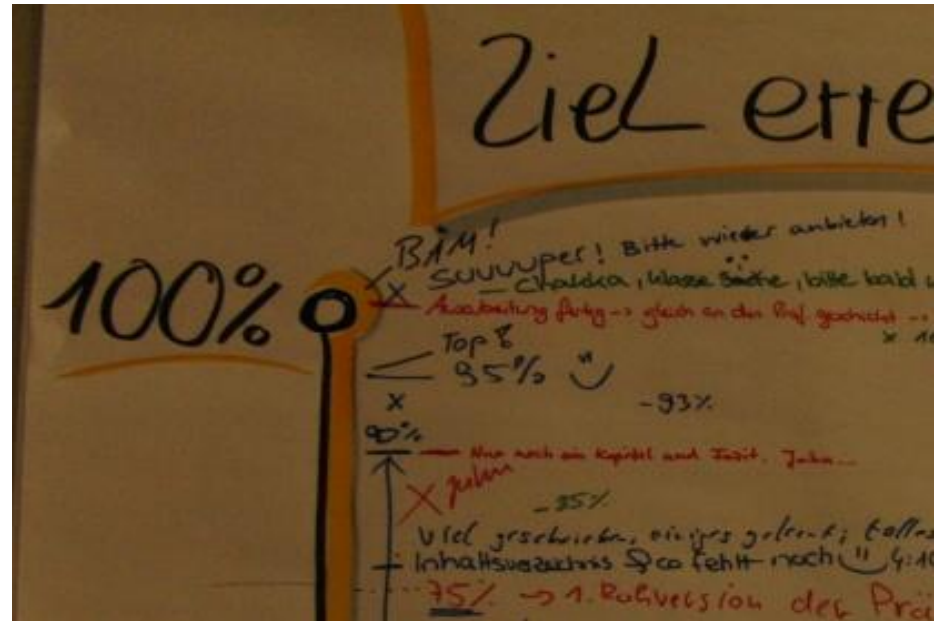 Ziel erre
BÄM!
SUUUUper! Bitte wieder anbieten!
Chakka, klasse Sache, bitte bald w
100%
Ausarbeitung fertig -> gleich an den Prof. geschickt ...
Top!
95%
-93%
90%
Nur noch ein Kapitel und Fazit. Juhu...
-85%
Viel geschrieben, einiges gelernt; tolles
Inhaltsverzeichnis & co fehlt noch 4:10
75% -> 1. Rohversion der Prä